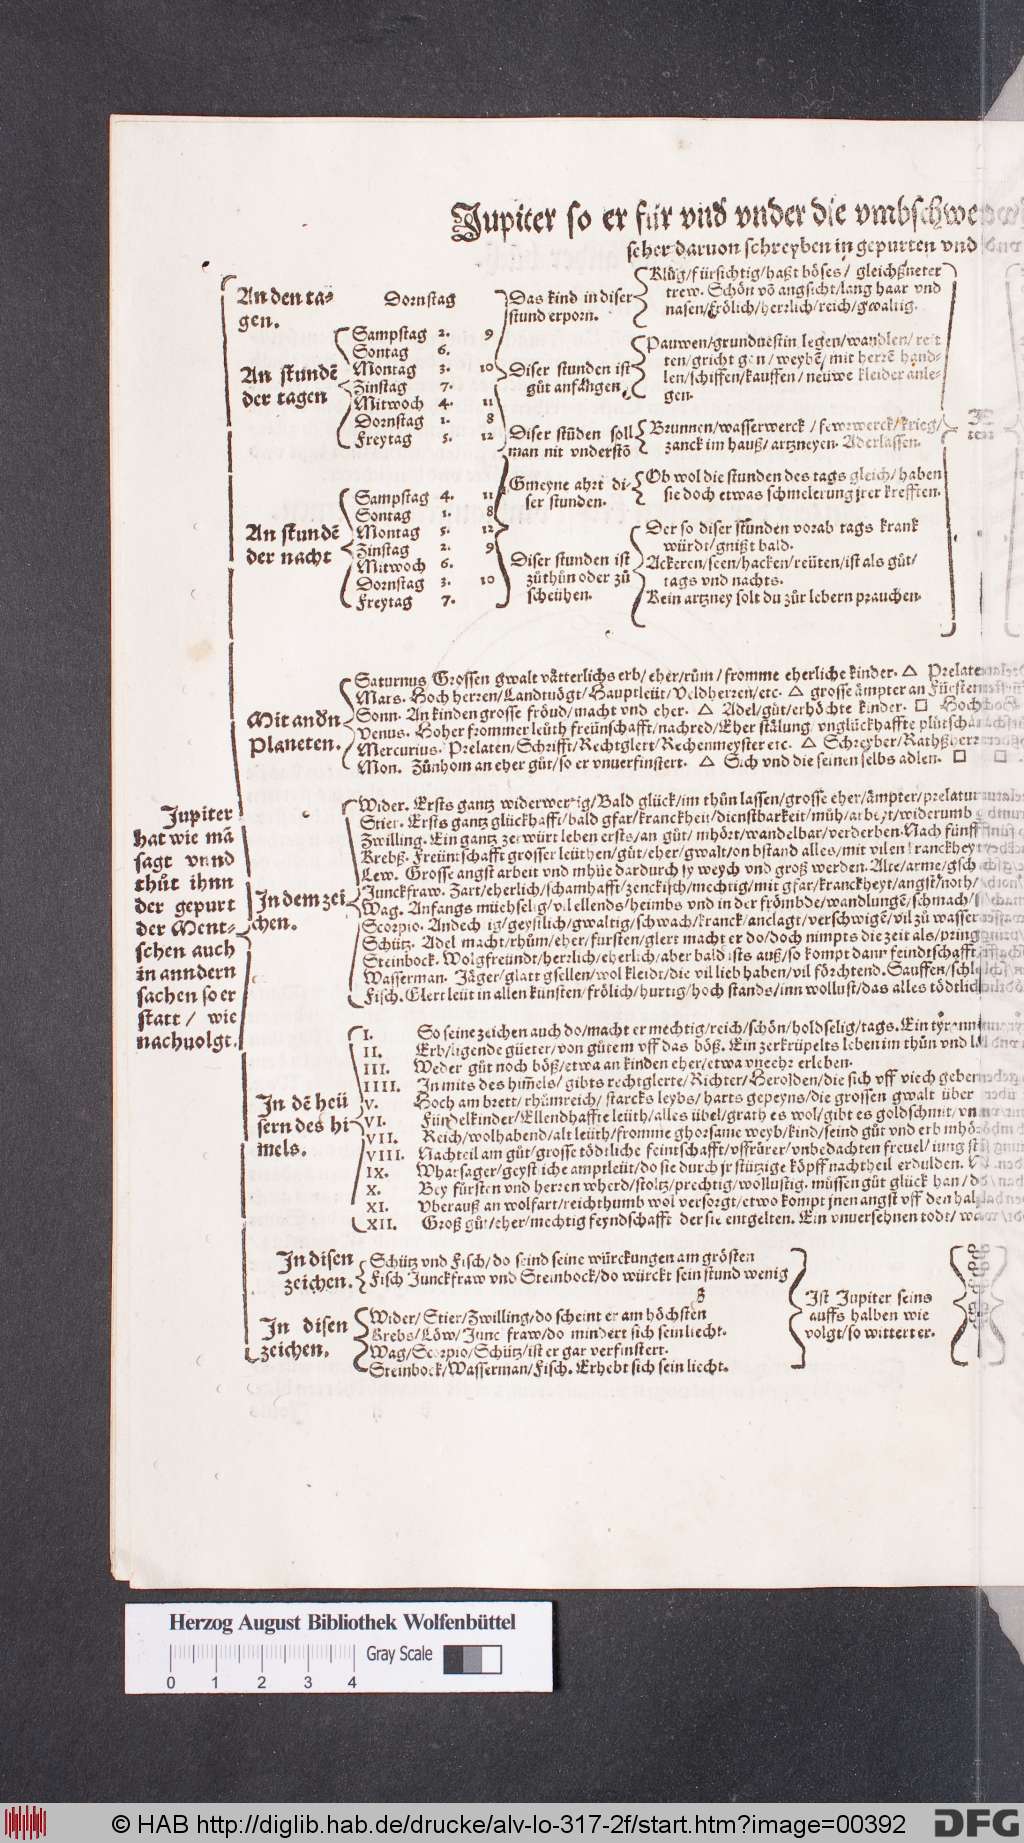 Jupiter so er für vnd vnder die vmbschwe
scher daruon schreyben in gepurten vnd
An den ta-
gen.
Dornstag
Das kind in diser
stund erporn.
Klůg/fürsichtig/haßt böses/ gleichßneter
trew. Schön võ angsicht/lang haar vnd
nasen/frölich/herrlich/reich/gwaltig.
An stundẽ
der tagen
Sampstag 2. 9
Sontag 6.
Montag 3. 10
Zinstag 7.
Mitwoch 4. 11
Dornstag 1. 8
Freytag 5. 12
Diser stunden ist
gůt anfãngen
Pauwen/grunduestin legen/wandlen/ reit
ten/gricht gen/weybẽ/mit herrẽ hand-
len/schiffen/kauffen/neüwe kleider anle-
gen.
Diser stũden soll
man nit vnderstõ
Brunnen/wasserwerck /fewrwerck/krieg/
zanck im hauß/artzneyen. Aderlassen.
Gmeyne ahrt di-
ser stunden.
Ob wol die stunden des tags gleich/haben
sie doch etwas schmelerung jrer krefften.
An stundẽ
der nacht
Sampstag 4. 11
Sontag 1. 8
Montag 5. 12
Zinstag 2. 9
Mitwoch 6.
Dornstag 3. 10
Freytag 7.
Diser stunden ist
zůthůn oder zů
scheühen.
Der so diser stunden vorab tags krank
würdt/gnißt bald.
Ackeren/seen/hacken/reüten/ist als gůt/
tags vnd nachts.
Kein artzney solt du zůr lebern prauchen.
Mit andn
Planeten.
Saturnus Grossen gwalt vätterlichs erb/eher/rům/fromme eherliche kinder. △ Prelate
Mars. Hoch herren/Landtuögt/Hauptleüt/Veldherren/etc. △ grosse ämpter an Fürsten
Sonn. An kinden grosse fröud/macht vnd eher. △ Adel/gůt/erhöchte kinder. □ Hoch
Venus. Hoher frommer leüth freünschafft/nachred/Eher stälung vnglückhaffte
Mercurius. Prelaten/Schrifft/Rechtglert/Rechenmeyster etc. △ Schreyber/Rathßherr
Mon. Zůnhom an eher gůt/so er vnuerfinstert. △ Sich vnd die seinen selbs adlen. □ □
Jupiter
hat wie mã
sagt vnnd
thůt ihnn
der gepurt
der Ment-
schen auch
in anndern
sachen so er
statt/ wie
nachuolgt.
In dem zei
chen.
Wider. Ersts gantz widerwertig/Bald glück/im thůn lassen/grosse eher/ämpter/prelatur
Stier. Ersts gantz glückhafft/bald gfar/kranckheit/dienstbarkeit/můh/arbeyt/widerumb
Zwilling. Ein gantz zerwürt leben ersts/an gůt/ mhört/wandelbar/verderben. Nach fünff
Krebß. Freüntschafft grosser leüthen/gůt/eher/gwalt/on bstand alles/mit vilen kranckheyt
Lew. Grosse angst arbeit vnd mhüe dardurch sy weych vnd groß werden. Alte/arme/
Junckfraw. Zart/eherlich/schamhafft/zenckisch/mechtig/mit gfar/kranckheyt/angst/noth/
Wag. Anfangs müehselig/vil ellends/heimbs vnd in der frömbde/wandlungẽ/schmach/
Scorpio. Andechtig/geystlich/gwaltig/schwach/kranck/anclagt/verschwigẽ/vil zů wasser
Schütz. Adel macht/rhům/eher/fursten/glert macht er do/doch nimpts die zeit als/pring
Steinbock. Wolgfreündt/herrlich/eherlich/aber bald ists auß/so kompt dann feindtschafft
Wasserman. Jäger/glatt gsellen/wol kleidt/die vil lieb haben/vil förchtend. Sauffen/
Fisch. Glert leüt in allen künsten/frölich/hurtig/hoch stands/inn wollust/das alles tödtlich
In dẽ heü
sern des hi
mels.
I. So seine zeichen auch do/macht er mechtig/reich/schön/holdselig/tags. Ein tyrann
II. Erb/ligende güeter/von gůtem vff das böß. Ein zerkrüpelts leben im thůn vnd
III. Weder gůt noch böß/etwa an kinden eher/etwa vneehr erleben.
IIII. In mits des him̃els/gibts rechtglerte/Richter/Herolden/die sich vff viech
V. Hoch am brett/rhůmreich/ starcks leybs/ harts gepeyns/die grossen gwalt über
VI. Fündelkinder/Ellendhaffte leüth/alles übel/grath es wol/gibt es goldschmit/
VII. Reich/wolhabend/alt leüth/fromme ghorsame weyb/kind/seind gůt vnd erb
VIII. Nachteil am gůt/grosse tödtliche feintschafft/vffrürer/vnbedachten freuel/iung
IX. Wharsager/geystliche amptleüt/do sie durch jr stützige köpff nachtheil erdulden.
X. Bey fürsten vnd herren wherd/stoltz/prechtig/wollustig. müssen gůt glück han/
XI. Vberauß an wolfart/reichthumb wol versorgt/etwo kompt jnen angst vff den
XII. Groß gůt/eher/mechtig feyndschafft der sie entgelten. Ein vnuersehnen todt/
In disen
zeichen.
Schütz vnd Fisch/do seind seine würckungen am grösten
Fisch Junckfraw vnd Steinbock/do würckt sein stund wenig
In disen
zeichen.
Wider/Stier/Zwilling/do scheint er am höchsten
Krebs/Löw/Junc fraw/do mindert sich sein liecht.
Wag/Scorpio/Schütz/ist er gar verfinstert.
Steinbock/Wasserman/Fisch. Erhebt sich sein liecht.
Ist Jupiter seins
auffs halben wie
volgt/so wittert er.
Herzog August Bibliothek Wolfenbüttel
Gray Scale
0 1 2 3 4
© HAB http://diglib.hab.de/drucke/alv-lo-317-2f/start.htm?image=00392
DFG